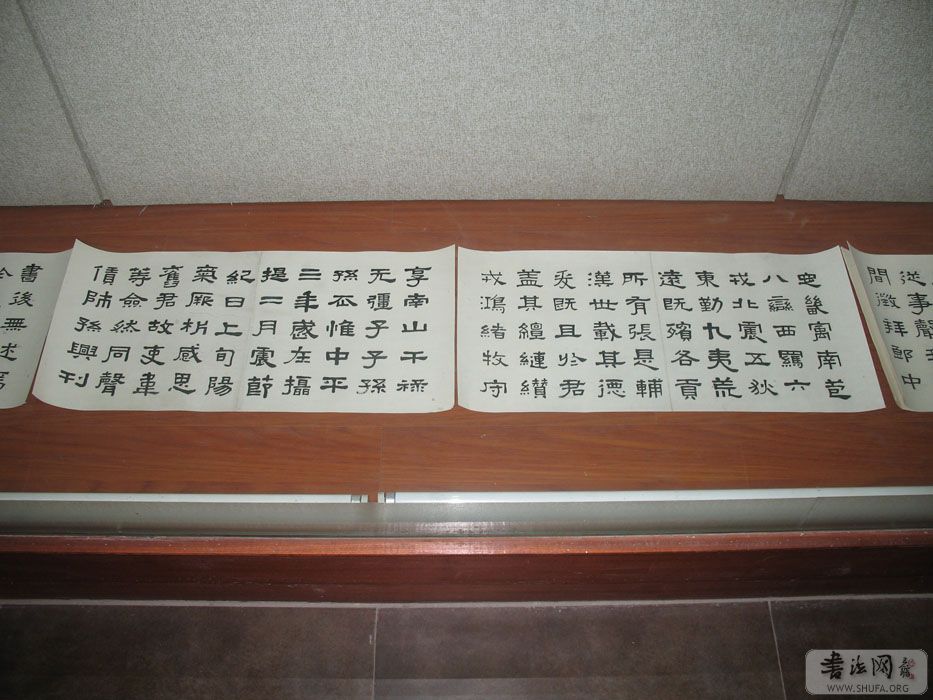 從事聲
間徵拜郎中
畿寓南苞
八蠻西羈六
戎北震五狄
東勤九夷荒
遠既殯各貢
所有張是輔
漢世載其德
爰既且於君
盖其繵縺纘
戎鴻緒牧守
享南山干祿
无疆子子孫
孫惟中平
三年歲在攝
提二月震節
紀日上旬陽
氣厥析感思
舊君故吏韋
等僉然同聲
賃師孫興刊
書後無述
書法网
WWW.SHUFA.ORG